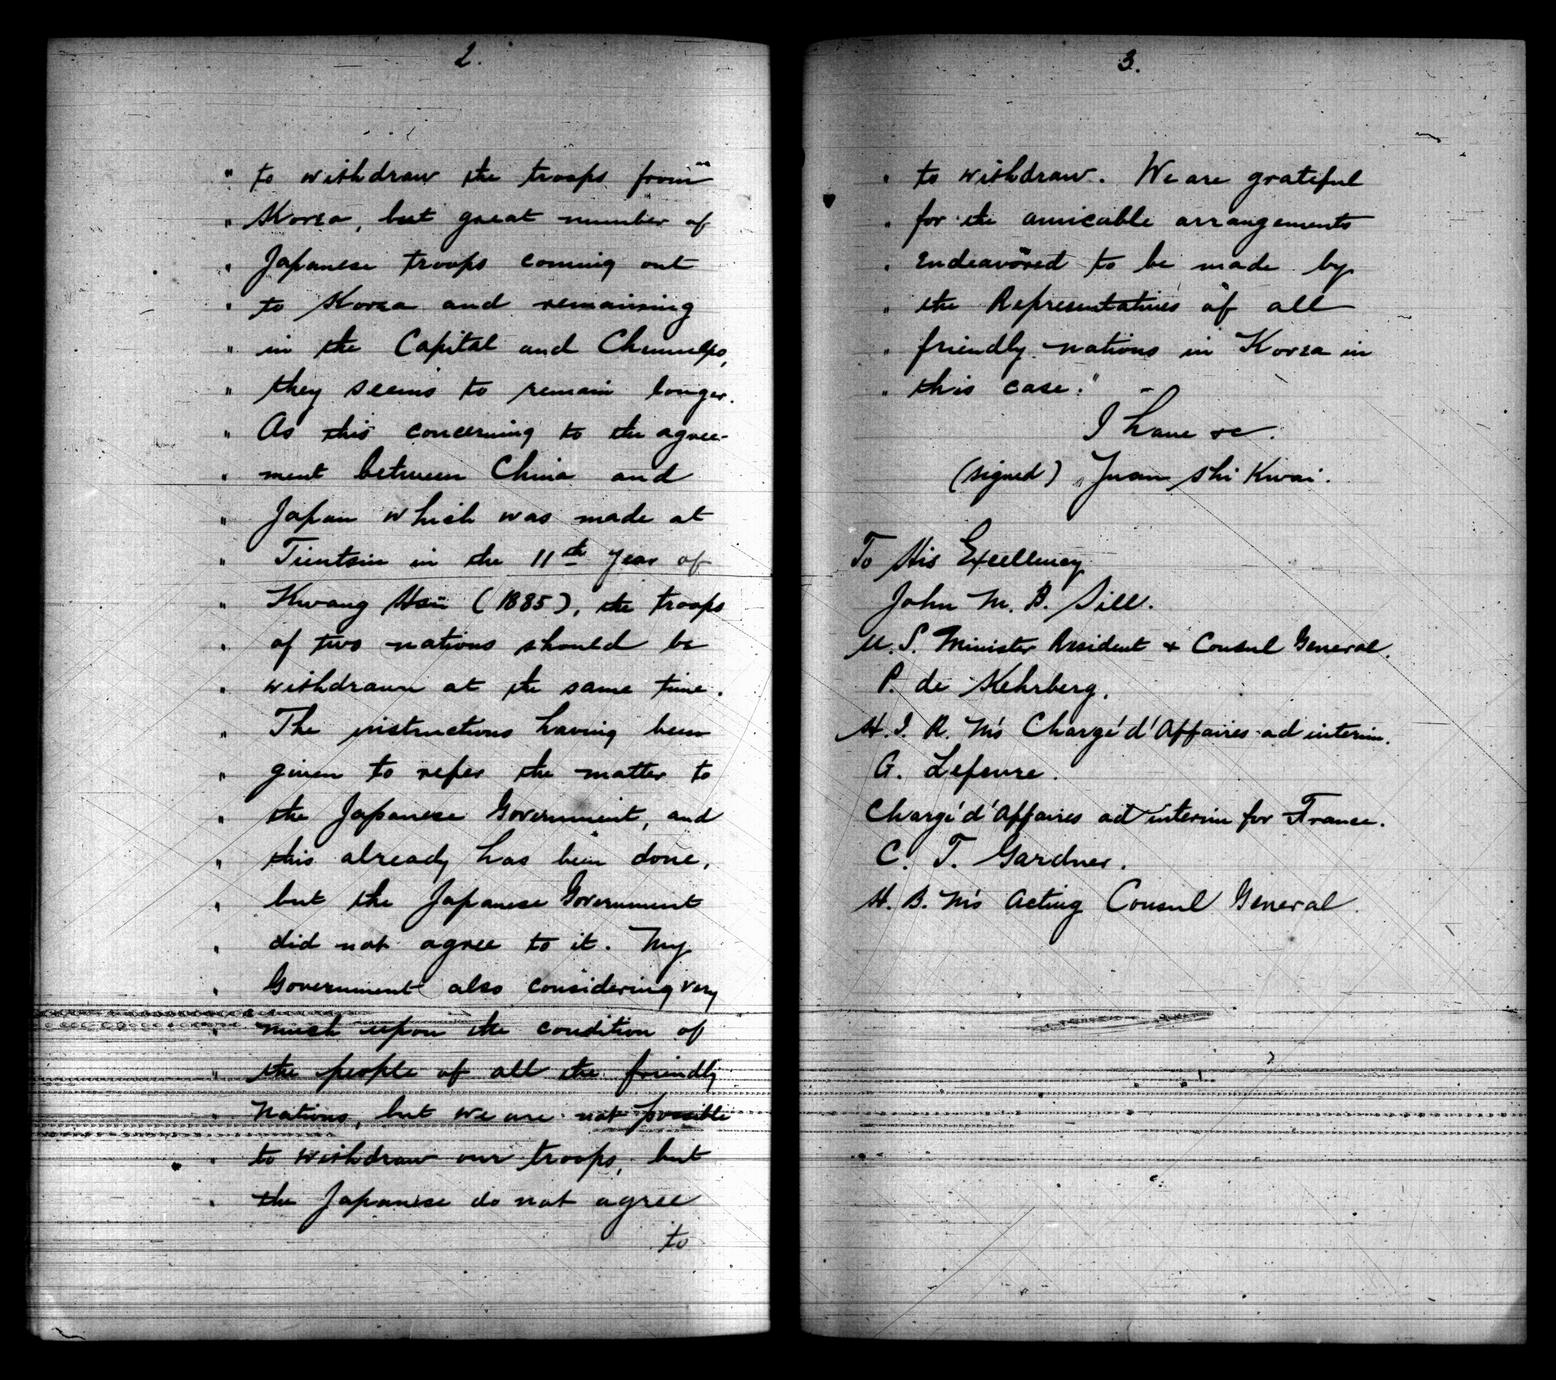 2.
" to withdraw the troops from "
" Korea, but great number of
" Japanese troops coming out
" to Korea and remaining
" in the Capital and Chemulpo,
" they seems to remain longer.
" As this concerning to the agree-
" ment between China and
" Japan which was made at
" Tientsin in the 11th Year of
" Kwang Hsü (1885), the troops
" of two nations should be
" withdrawn at the same time.
" The instructions having been
" given to refer the matter to
" the Japanese Government, and
" this already has been done,
" but the Japanese Government
" did not agree to it. My
" Government also considering very
" much upon the condition of
" the people of all the friendly
" Nations, but we are not possible
" to withdraw our troops, but
" the Japanese do not agree
to
3.
" to withdraw. We are grateful
" for the amicable arrangements
" endeavored to be made by
" the Representatives of all
" friendly nations in Korea in
" this case."
I have &c.
(signed) Yuan Shi Kwai.
To His Excellency
John M. B. Sill.
U. S. Minister Resident & Consul General.
P. de Kehrberg.
H. I. R. M's Chargé d'Affaires ad interim.
G. Lefevre.
Chargé d'Affaires ad interim for France.
C. T. Gardner.
H. B. M's Acting Consul General.